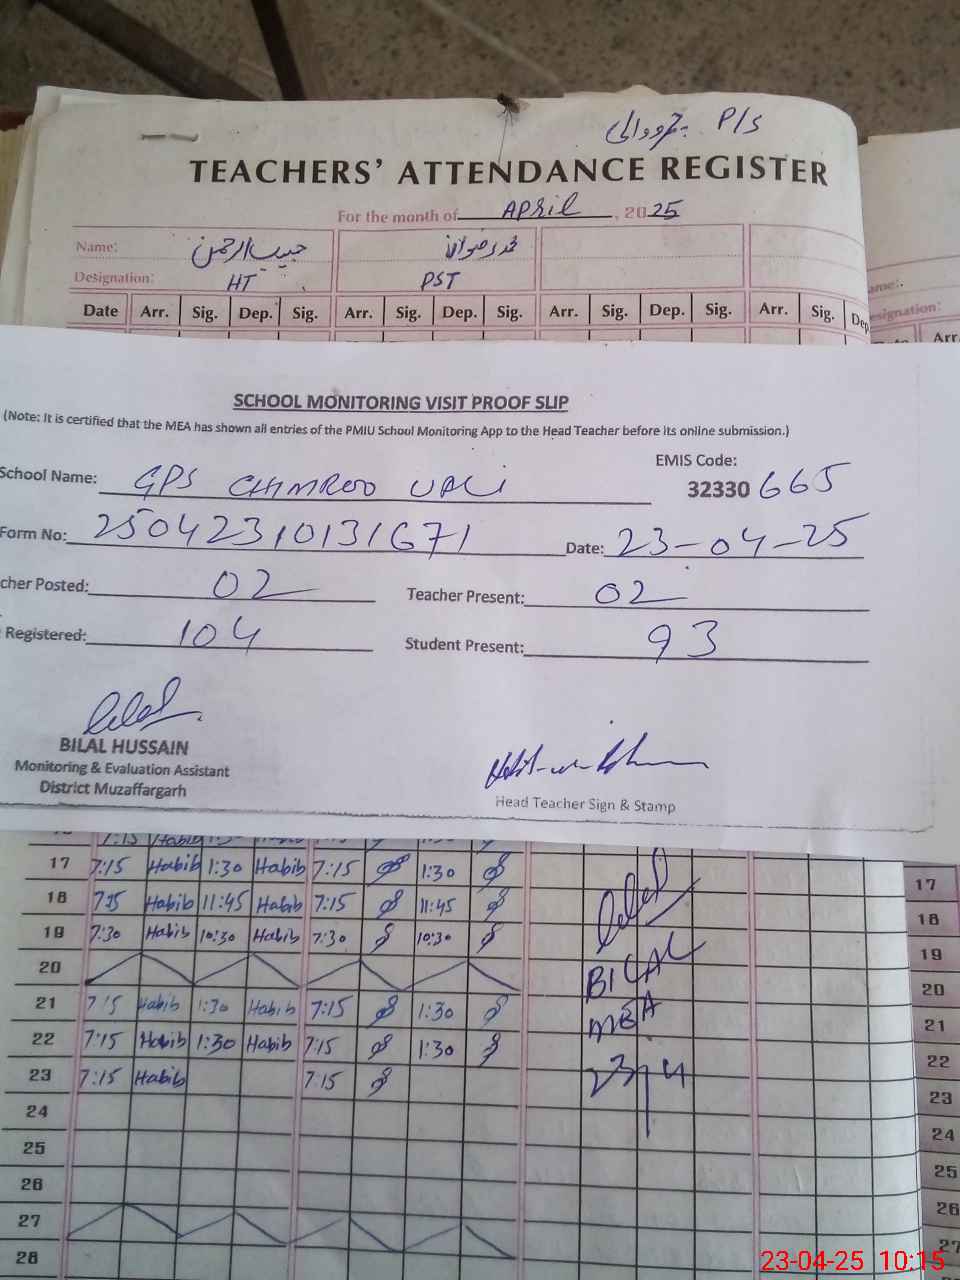 P/S چمرووالی
TEACHERS' ATTENDANCE REGISTER
For the month of APRil, 2025
Name: حبیب الرحمن محمد رضوان
Designation: HT PST
Date Arr. Sig. Dep. Sig. Arr. Sig. Dep. Sig. Arr. Sig. Dep. Sig. Arr. Sig. Dep
ame:
esignation:
Arr
SCHOOL MONITORING VISIT PROOF SLIP
(Note: It is certified that the MEA has shown all entries of the PMIU School Monitoring App to the Head Teacher before its online submission.)
School Name: GPS CHMROO WALI
EMIS Code:
32330 665
Form No: 25042310131671 Date: 23-04-25
cher Posted: 02 Teacher Present: 02
Registered: 104 Student Present: 93
Bilal
BILAL HUSSAIN
Monitoring & Evaluation Assistant
District Muzaffargarh
Head Teacher Sign & Stamp
7:15 Habib
17 7:15 Habib 1:30 Habib 7:15 1:30 17
18 7:15 Habib 11:45 Habib 7:15 11:45 18
19 7:30 Habib 10:30 Habib 7:30 10:30 19
20 20
21 7:15 Habib 1:30 Habib 7:15 1:30 21
22 7:15 Habib 1:30 Habib 7:15 1:30 22
23 7:15 Habib 7:15 23
24 24
25 25
26 26
27 27
28
Bilal
BILAL
MEA
23/4
23-04-25 10:15